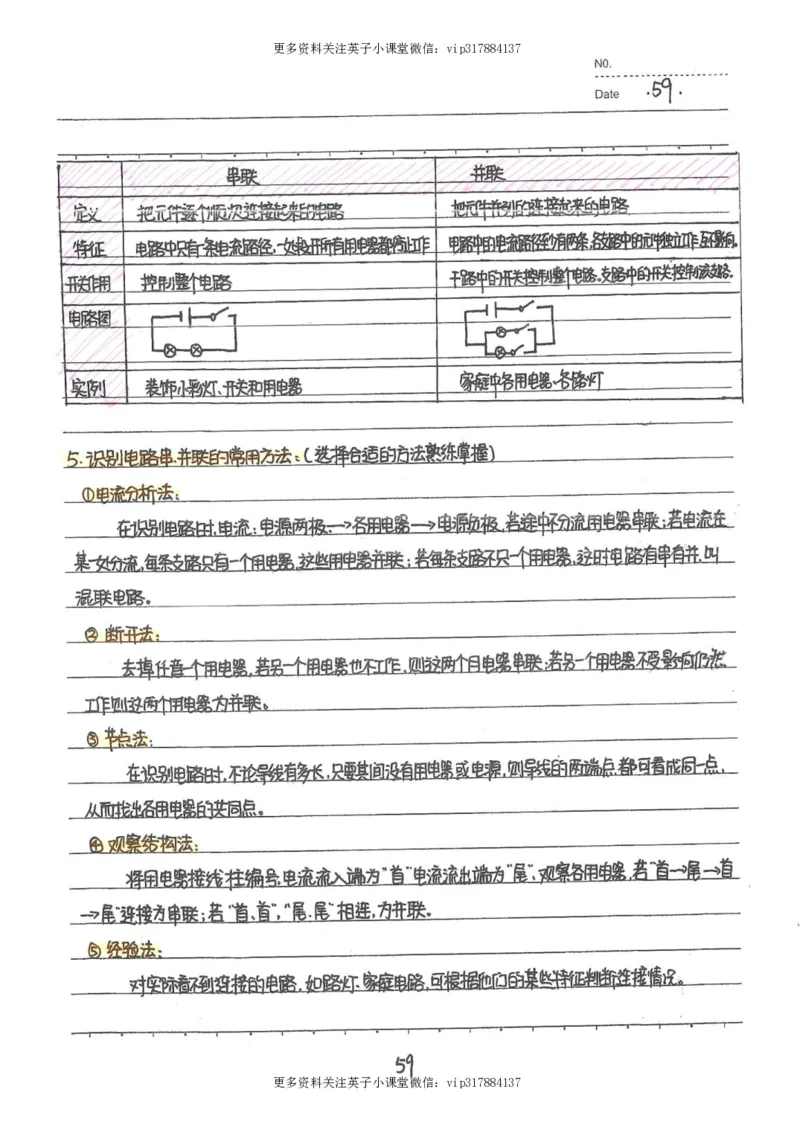 更多资料关注英子小课堂微信：vip317884137
NO.
Date .59.
串联 并联
定义 把元件逐个顺次连接起来的电路 把元件并列的连接起来的电路
特征 电路中只有一条电流路径，一处段开所有用电器都停止工作 电路中的电流路径至少有两条，各支路中的元件独立工作，互不影响。
开关作用 控制整个电路 干路中的开关控制整个电路。支路中的开关控制该支路。
电路图
实例 装饰小彩灯、开关和用电器 家庭中各用电器、各路灯
5.识别电路串、并联的常用方法：（选择合适的方法熟练掌握）
①电流分析法：
在识别电路时，电流：电源两极→各用电器→电源负极，若途中不分流用电器串联；若电流在
某一处分流，每条支路只有一个用电器，这些用电器并联；若每条支路不只一个用电器，这时电路有串有并，叫
混联电路。
②断开法：
去掉任意一个用电器，若另一个用电器也不工作，则这两个用电器串联；若另一个用电器不受影响仍然
工作则这两个用电器为并联。
③节点法：
在识别电路时，不论导线有多长，只要其间没有用电器或电源，则导线的两端点都可看成同一点，
从而找出各用电器的共同点。
④观察结构法：
将用电器接线柱编号，电流流入端为“首”电流流出端为“尾”，观察各用电器，若“首→尾→首
→尾”连接为串联；若“首、首”，“尾、尾”相连，为并联。
⑤经验法：
对实际看不到连接的电路，如路灯、家庭电路，可根据他们的某些特征判断连接情况。
59
更多资料关注英子小课堂微信：vip317884137